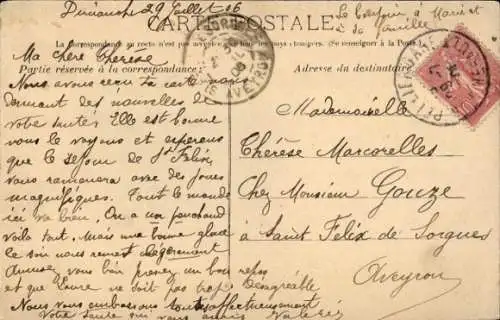 Dimanche 29 Juillet 06
CARTE POSTALE
La Correspondance au recto n'est pas acceptée par tous les pays étrangers. (Se renseigner à la Poste)
Partie réservée à la correspondance
Adresse du destinataire
Ma chère Thérèse
Nous avons reçu ta carte nous
donnant des nouvelles de
votre santé Elle est bonne
nous le voyons et espérons
que le séjour de St Félix
vous ramènera avec des joues
magnifiques. Tout le monde
ici va bien. On a un peu chaud
voilà tout. Mais une bonne glace
le soir nous remet légèrement
Amusez vous bien prenez un bon repos
et que Laure ne soit pas trop désagréable
Nous vous embrassons tous affectueusement
Valérie
Mademoiselle
Thérèse Marcorelles
Chez Monsieur Gouze
à Saint Félix de Sorgues
Aveyron
AVEYRON